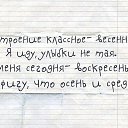 строение классное - весеннее
Я иду, улыбки не тая.
меня сегодня - воскресенье
фигу, что осень и сред